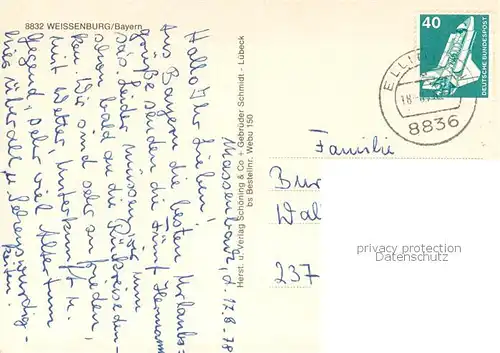 8832 WEISSENBURG/Bayern
Massenbach, d. 17.8.78
Hallo Ihr Lieben!
Aus Bayern die besten Urlaubs-
grüße senden die fünf Hermanns
Leider müssen wir nun
schon bald an die Rückreise den-
ken. Wir sind sehr zufrieden
mit Wetter, Unterkunft u.
Gegend, sehr viel Altertum
hier überall u. Sehenswürdig-
keiten.
Herst. u. Verlag Schöning & Co + Gebrüder Schmidt · Lübeck
bs Bestellnr. Webu 150
40
DEUTSCHE BUNDESPOST
8836
Familie
237
privacy protection
Datenschutz